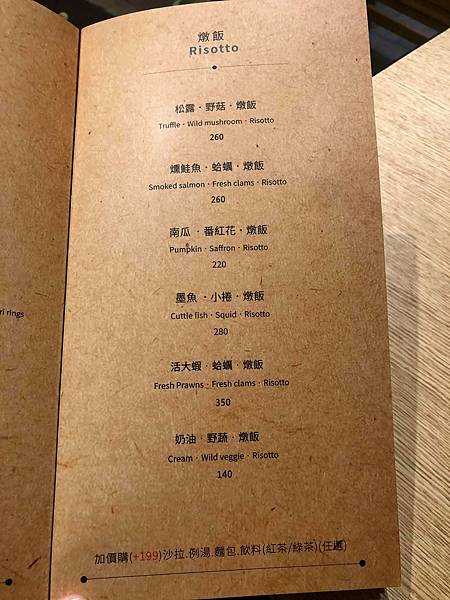 燉飯
Risotto
松露．野菇．燉飯
Truffle · Wild mushroom · Risotto
260
燻鮭魚．蛤蠣．燉飯
Smoked salmon · Fresh clams · Risotto
260
南瓜．番紅花．燉飯
Pumpkin · Saffron · Risotto
220
墨魚．小捲．燉飯
Cuttle fish · Squid · Risotto
280
活大蝦．蛤蠣．燉飯
Fresh Prawns · Fresh clams · Risotto
350
奶油．野蔬．燉飯
Cream · Wild veggie · Risotto
140
加價購(+199)沙拉.例湯.麵包.飲料(紅茶/綠茶)(任選)
rings